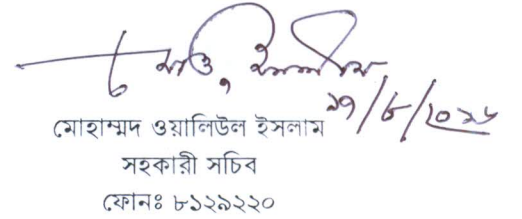 মোহাম্মদ ওয়ালিউল ইসলাম
সহকারী সচিব
ফোনঃ ৮১২৯২২০